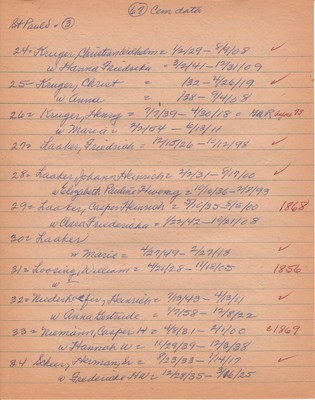 (67) Cem data
St Pauls - (3)
24 = Kruger, Christian Wilhelm = 1/2/29 - 5/9/08 ✓
w Hanna Fridricka = 3/2/41 - 12/31/09
25 - Kruger, Christ = 1832 - 2/26/19 ✓
w Anna = 1838 - 9/4/08
26 = Kruger, Henry = 7/7/39 - 4/20/18 =
w Maria = 2/2/54 - 6/13/11
27 = Laaker, Friedrich = 12/15/26 - 10/12/93 ✓
28 = Laaker, Johann Heinrich = 2/2/31 - 9/17/00 ✓
w Elizabeth Pauline = 10/10/36 - 2/18/93
29 = Laaker, Casper Heinrich = 9/10/35 - 5/5/00 1868
w Clara Friedericka = 1/22/42 - 10/21/08
30 = Laaker
w Maria = 4/27/49 - 2/27/13 ✓
31 = Loosing, William = 4/21/28 - 11/18/05 1856
w
32 = Niederhoefer, Heinrich = 7/3/43 - 4/3/11 ✓
w Anna Gertrude = 1/7/58 - 12/8/22
33 = Niemann, Casper H = 4/8/31 - 2/1/20 1869
w Hannah W = 11/29/39 - 12/3/38
34 Scheer, Herman, Sr = 8/23/33 - 1/4/17 ✓
w Fredericke HW = 12/25/35 - 3/16/25